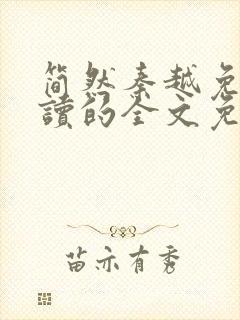 简然秦越免
讀的全文免
苗亦有秀